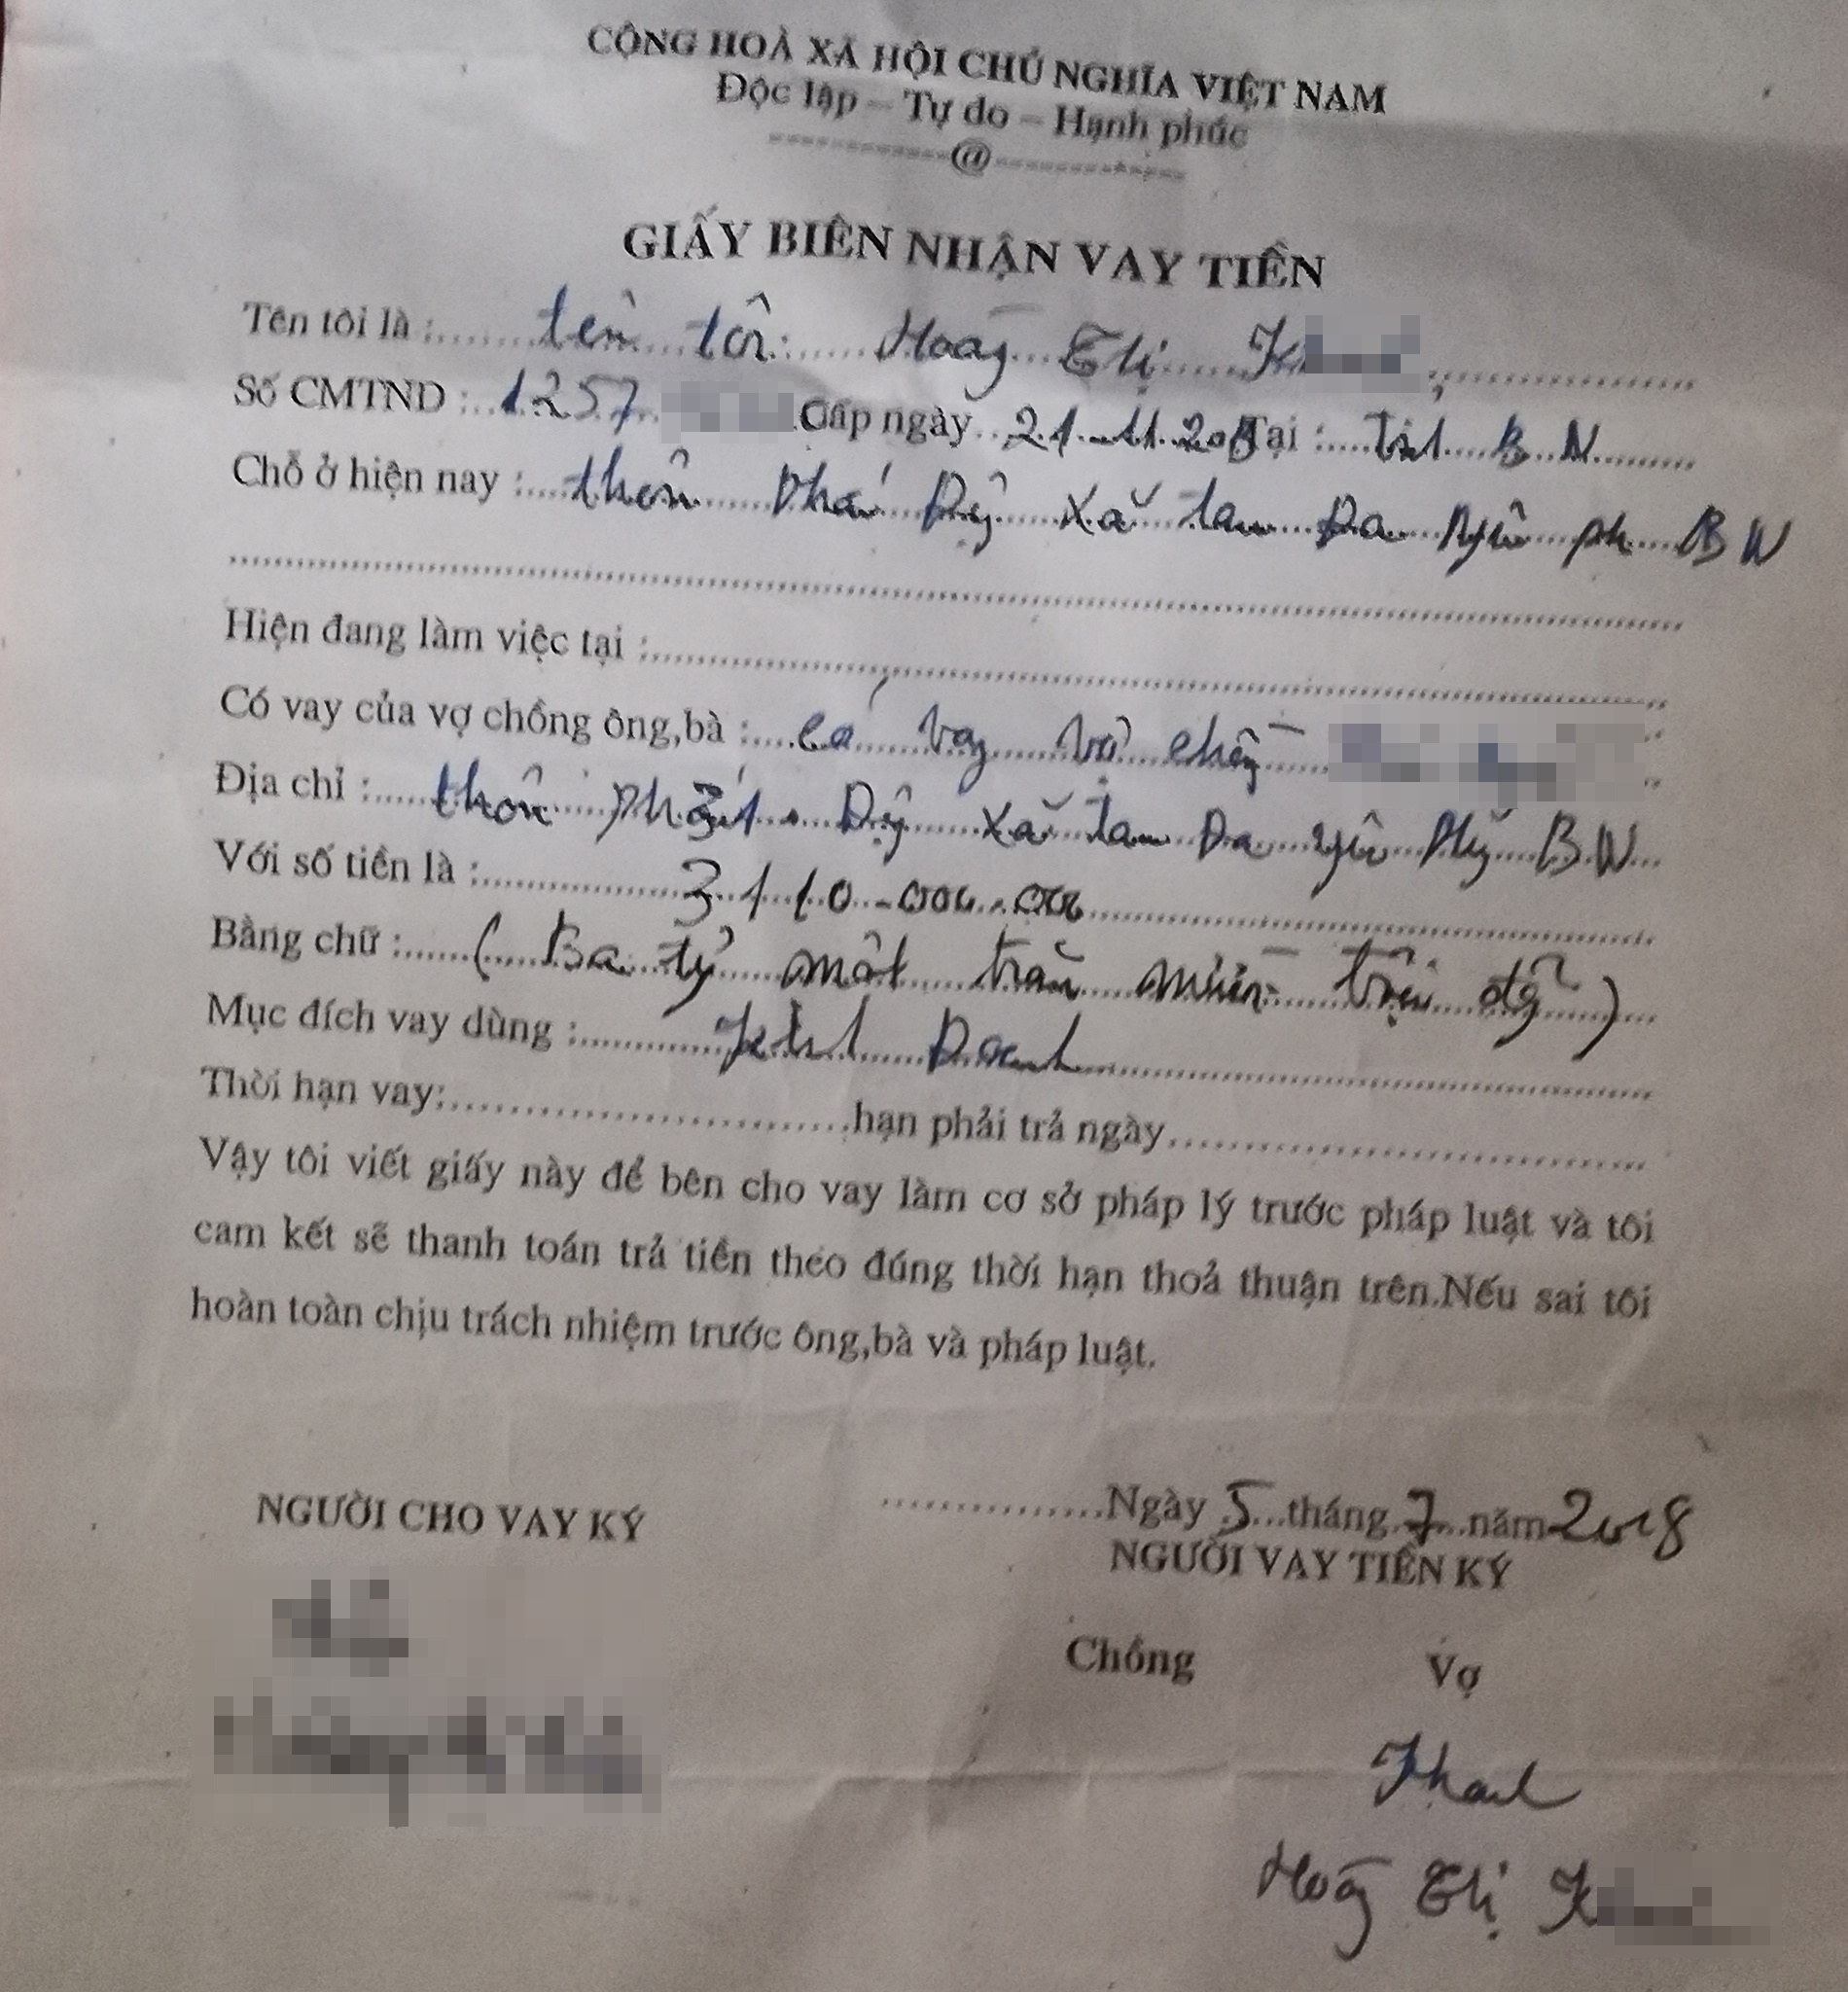 CỘNG HOÀ XÃ HỘI CHỦ NGHĨA VIỆT NAM
Độc lập – Tự do – Hạnh phúc
------------@------------
GIẤY BIÊN NHẬN VAY TIỀN
Tên tôi là : tên tôi: Hoàng Thị
Số CMTND : 1257 Cấp ngày 21-11.20 Tại : Tỉnh B N
Chỗ ở hiện nay : thôn Phấn Động xã tam Đa Yên ph BN
Hiện đang làm việc tại :
Có vay của vợ chồng ông,bà : có vay vợ chồng
Địa chỉ : thôn Động xã tam Đa yên BN
Với số tiền là : 3110.000.000
Bằng chữ : (Ba tỷ một trăm mười triệu đồng)
Mục đích vay dùng : Kinh Doanh
Thời hạn vay: hạn phải trả ngày
Vậy tôi viết giấy này để bên cho vay làm cơ sở pháp lý trước pháp luật và tôi
cam kết sẽ thanh toán trả tiền theo đúng thời hạn thoả thuận trên.Nếu sai tôi
hoàn toàn chịu trách nhiệm trước ông,bà và pháp luật.
Ngày 5 tháng 7 năm 2018
NGƯỜI CHO VAY KÝ NGƯỜI VAY TIỀN KÝ
Chồng Vợ
Hoàng Thị